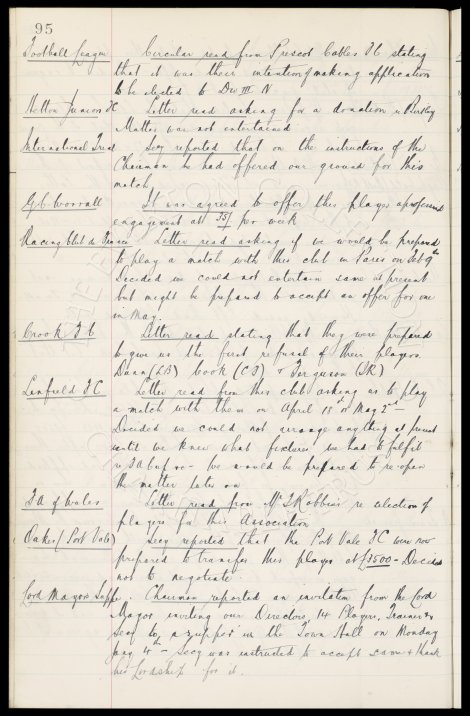 95
Football League Circular read from Prescot Cables FC stating
that it was their intention of making application
to be elected to Div III N
Hetton Junior FC Letter read asking for a donation
Matter was not entertained
International Trial Secy reported that on the instructions of the
Chairman he had offered our ground for this
match
G.C. Worrall It was agreed to offer this player a professional
engagement at 35/ per week
Racing Club de France Letter read asking if we would be prepared
to play a match with this club in Paris on Feb 9th
Decided we could not entertain same at present
but might be prepared to accept an offer for one
in May.
Crook FC Letter read stating that they were prepared
to give us the first refusal of their players
Dunn (LB) Cook (CF) & Ferguson (IR)
Linfield FC Letter read from this club asking us to play
a match with them on April 13th or May 2nd —
Decided we could not arrange anything at present
until we knew what fixtures we had to fulfil
re FA Cup &c - We would be prepared to re-open
the matter later on
FA of Wales Letter read from Mr T Robbins re selection of
players for this Association
Oakes (Port Vale) Secy reported that the Port Vale FC were now
prepared to transfer this player at £3500 - Decided
not to negotiate.
Lord Mayors Supper. Chairman reported an invitation from the Lord
Mayor inviting our Directors, 14 Players, Trainer &
Secy to a supper in the Town Hall on Monday
Jany 4th - Secy was instructed to accept same & thank
his Lordship for it.